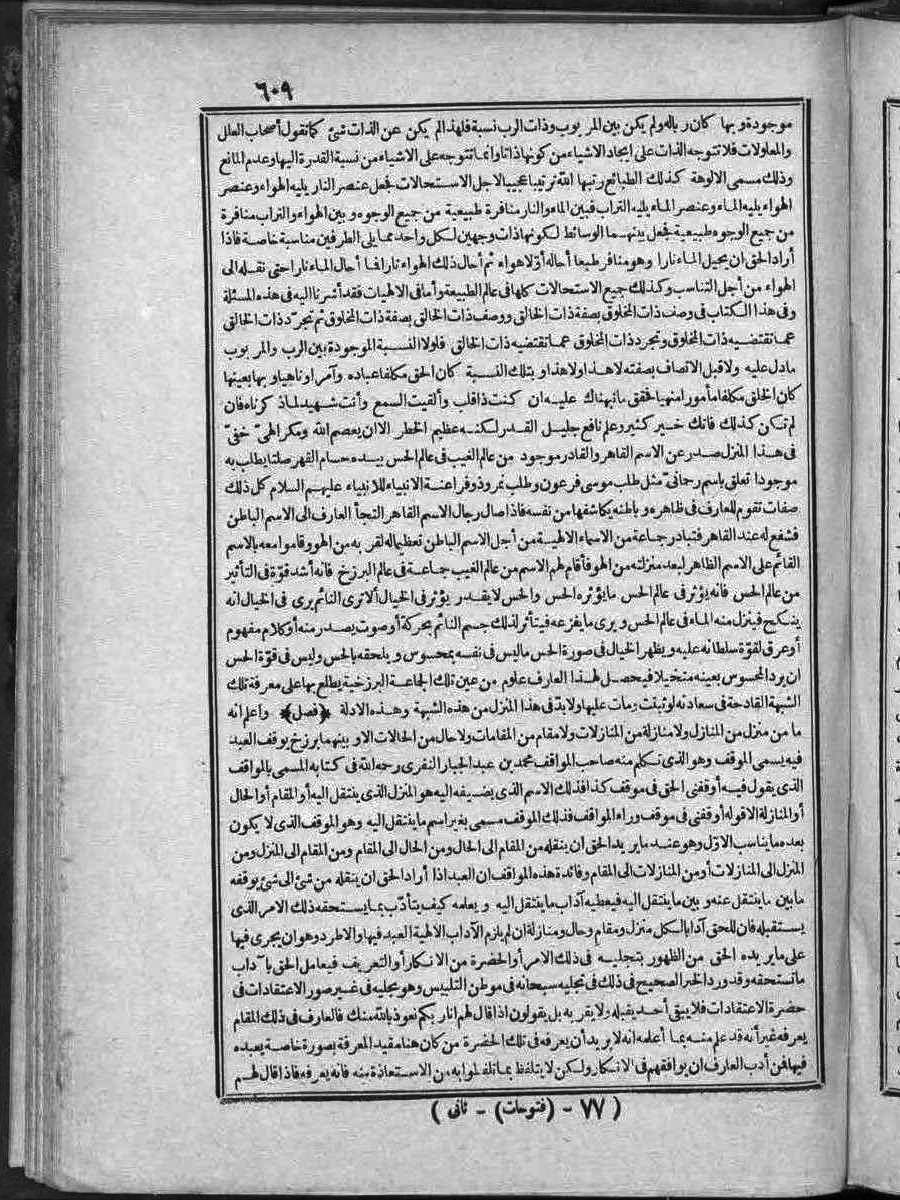 ٦٠٩
موجودة وبها كان رباله ولم يكن بين المربوب وذات الرب نسبة فلهذا لم يكن عن الذات شئ كما تقول أصحاب العلل
والمعلولات فلا تتوجه الذات على ايجاد الاشياء من كونها ذاتا وانما تتوجه على الاشياء من نسبة القدرة اليها وعدم المانع
وذلك مسمى الالوهة كذلك الطبائع رتبها الله ترتيبا عجيبا لاجل الاستحالات فجعل عنصر النار يليه الهواء وعنصر
الهواء يليه الماء وعنصر الماء يليه التراب فبين الماء والنار منافرة طبيعية من جميع الوجوه وبين الهواء والتراب منافرة
من جميع الوجوه طبيعية فجعل بينهما الوسائط لكونها ذات وجهين لكل واحد مما يلى الطرفين مناسبة خاصة فاذا
أراد الحق ان يحيل الماء نارا وهو منافر طبعا أحاله أولا هواء ثم أحال ذلك الهواء نارا فما أحال الماء نارا حتى نقله الى
الهواء من أجل التناسب وكذلك جميع الاستحالات كلها فى عالم الطبيعة وأما فى الالهيات فقد أشرنا اليه فى هذه المسئلة
وفى هذا الكتاب فى وصف ذات المخلوق بصفة ذات الخالق ووصف ذات الخالق بصفة ذات المخلوق ثم تجرّد ذات الخالق
عما تقتضيه ذات المخلوق وتجرد ذات المخلوق عما تقتضيه ذات الخالق فلولا النسبة الموجودة بين الرب والمربوب
ما دل عليه ولا قبل الاتصاف بصفته لا هذا ولا هذا وبتلك النسبة كان الحق مكلفا عباده وآمرا وناهيا وبها بعينها
كان الخلق مكلفا مأمورا منهيا فحقق ما نبهناك عليه ان كنت ذا قلب وألقيت السمع وأنت شهيد لما ذكرناه فان
لم تكن كذلك فاتك خير كثير وعلم نافع جليل القدر لكنه عظيم الخطر الا ان يعصم الله ومكر الهىّ خفىّ
فى هذا المنزل صدر عن الاسم القاهر والقادر موجود من عالم الغيب فى عالم الحس بيده حسام القهر صلتا يطلب به
موجودا تعلق باسم رحمانى مثل طلب موسى فرعون وطلب نمروذ وفراعنة الانبياء للانبياء عليهم السلام كل ذلك
صفات تقوم للعارف فى ظاهره وباطنه يكاشفها من نفسه فاذا صال رجال الاسم القاهر التجأ العارف الى الاسم الباطن
فشفع له عند القاهر فتبادر جماعة من الاسماء الالهية من أجل الاسم الباطن تعظيما له لقربه من الهو وقاموا معه بالاسم
القائم على الاسم الظاهر لبعد منزلته من الهو فأقام لهم الاسم من عالم الغيب جماعة فى عالم البرزخ فانه أشد قوّة فى التأثير
من عالم الحس فانه يؤثر فى عالم الحس ما يؤثره الحس والحس لا يقدر يؤثر فى الخيال ألا ترى النائم يرى فى الخيال انه
ينكح فينزل منه الماء فى عالم الحس ويرى ما يفزعه فيتأثر لذلك جسم النائم بحركة أو صوت يصدر منه أو كلام مفهوم
أو عرق لقوّة سلطانه عليه ويظهر الخيال فى صورة الحس ما ليس فى نفسه بمحسوس ويلحقه بالحس وليس فى قوّة الحس
ان يرد المحسوس بعينه متخيلا فيحصل لهذا العارف علوم من عين تلك الجماعة البرزخية يطلع بها على معرفة تلك
الشبهة القادحة فى سعادته لو ثبتت ومات عليها ولا بد فى هذا المنزل من هذه الشبهة وهذه الادلة ﴿فصل﴾ واعلم انه
ما من منزل من المنازل ولا منازلة من المنازلات ولا مقام من المقامات ولا حال من الحالات الا وبينهما برزخ يوقف العبد
فيه يسمى الموقف وهو الذى تكلم منه صاحب المواقف محمد بن عبد الجبار النفرى رحمه الله فى كتابه المسمى بالمواقف
الذى يقول فيه أوقفنى الحق فى موقف كذا فذلك الاسم الذى يضيفه اليه هو المنزل الذى ينتقل اليه أو المقام أو الحال
أو المنازلة الا قوله أوقفنى فى موقف وراء المواقف فذلك الموقف مسمى بغير اسم ما ينتقل اليه وهو الموقف الذى لا يكون
بعده ما يناسب الاوّل وهو عند ما يريد الحق ان ينقله من المقام الى الحال ومن الحال الى المقام ومن المقام الى المنزل ومن
المنزل الى المنازلات أو من المنازلات الى المقام وفائدة هذه المواقف ان العبد اذا أراد الحق ان ينقله من شئ الى شئ يوقفه
ما بين ما ينتقل عنه وبين ما ينتقل اليه فيعطيه آداب ما ينتقل اليه ويعلمه كيف يتأدّب بما يستحقه ذلك الامر الذى
يستقبله فان للحق آدابا لكل منزل ومقام وحال ومنازلة ان لم يلزم الآداب الالهية العبد فيها والا طرد وهو ان يجرى فيها
على ما يريده الحق من الظهور بتجليه فى ذلك الامر أو الحضرة من الانكار أو التعريف فيعامل الحق بآداب
ما تستحقه وقد ورد الخبر الصحيح فى ذلك فى تجليه سبحانه فى موطن التلبيس وهو تجليه فى غير صور الاعتقادات فى
حضرة الاعتقادات فلا يبقى أحد يقبله ولا يقر به بل يقولون اذا قال لهم أنا ربكم نعوذ بالله منك فالعارف فى ذلك المقام
يعرفه غير أنه قد علم منه بما أعلمه انه لا يريد أن يعرفه فى تلك الحضرة من كان هنا مقيد المعرفة بصورة خاصة يعبده
فيها فمن أدب العارف ان يوافقهم فى الانكار ولكن لا يتلفظ بما تلفظوا به من الاستعاذة منه فانه يعرفه فاذا قال لهم
(٧٧ - (فتوحات) - ثانى)